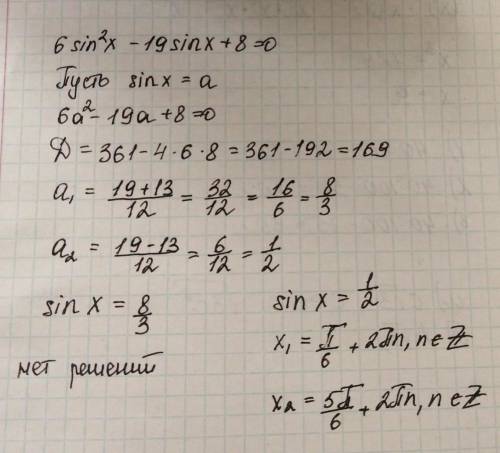 6 sin²x - 19 sin x + 8 = 0
Пусть sin x = a
6a² - 19a + 8 = 0
D = 361 - 4 · 6 · 8 = 361 - 192 = 169
a₁ = (19 + 13)/12 = 32/12 = 16/6 = 8/3
a₂ = (19 - 13)/12 = 6/12 = 1/2
sin x = 8/3
нет решений
sin x = 1/2
x₁ = π/6 + 2πn, n ∈ Z
x₂ = 5π/6 + 2πn, n ∈ Z